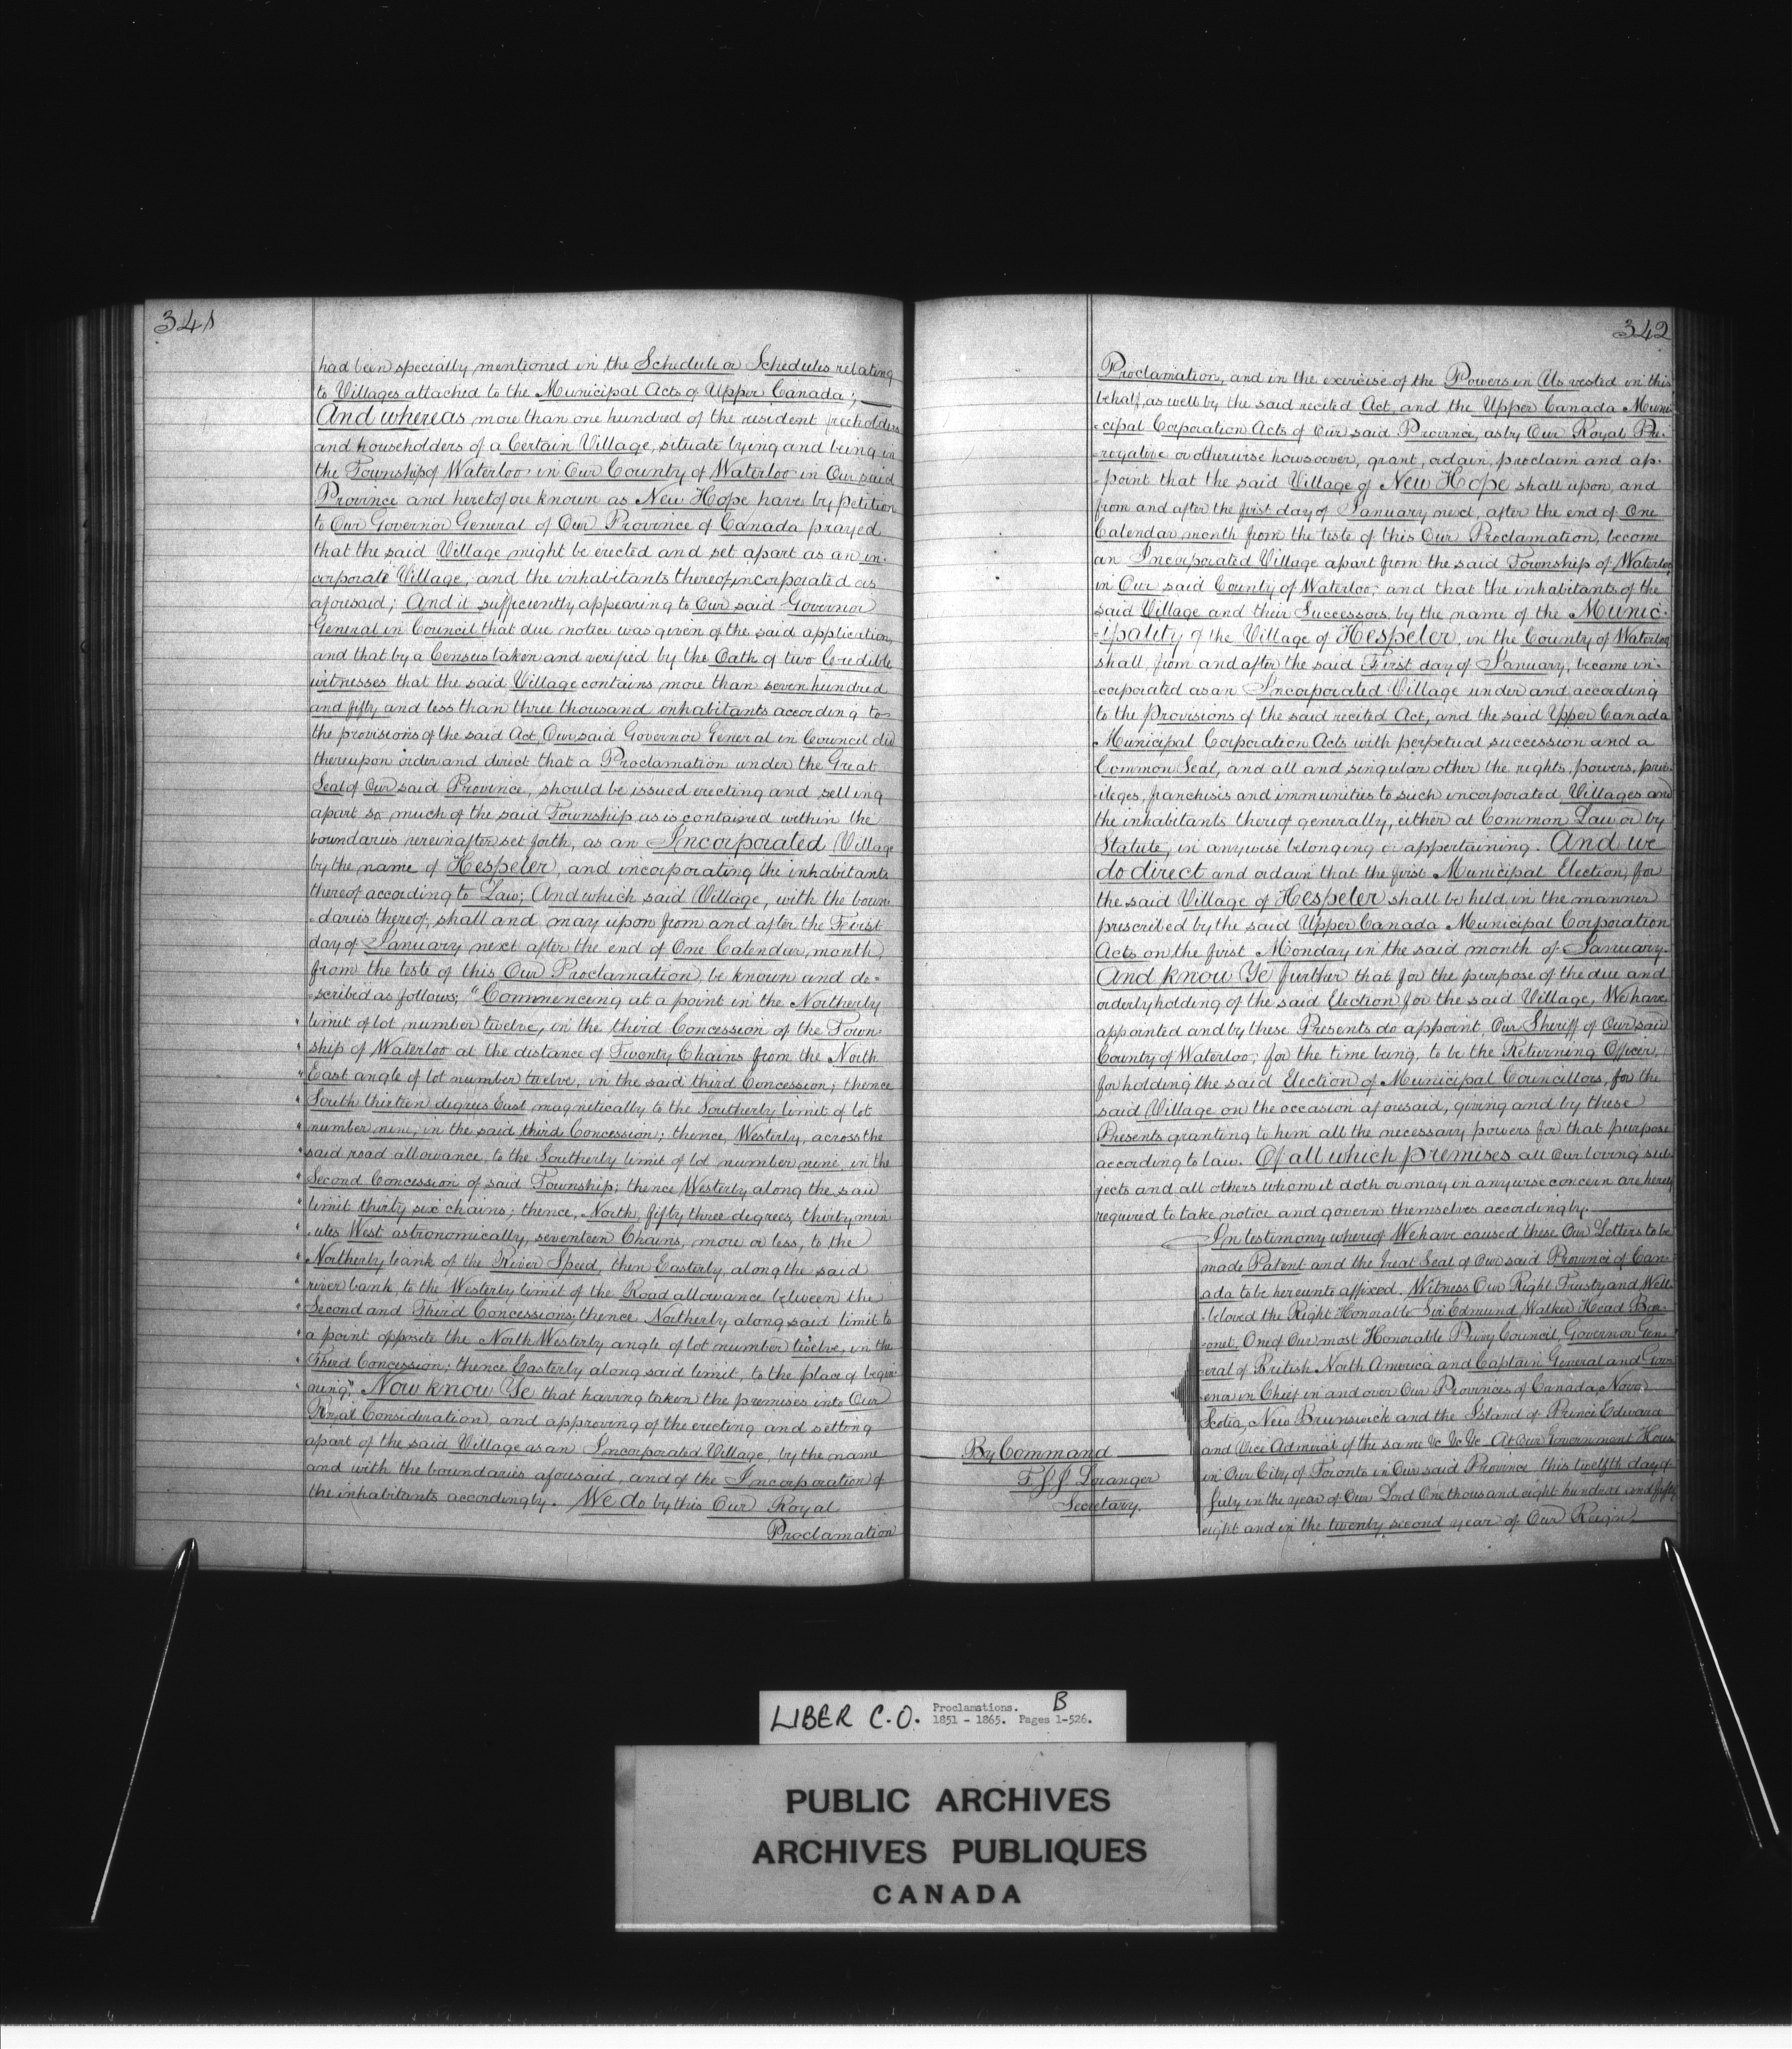 341
had been specially mentioned in the Schedule or Schedules relating
to Villages attached to the Municipal Acts of Upper Canada;
And whereas more than one hundred of the resident freeholders
and householders of a Certain Village, situate lying and being in
the Township of Waterloo in Our County of Waterloo in Our said
Province and heretofore known as New Hope have by petition
to Our Governor General of Our Province of Canada prayed
that the said Village might be erected and set apart as an in-
corporate Village, and the inhabitants thereof, incorporated as
aforesaid; And it sufficiently appearing to Our said Governor
General in Council that due notice was given of the said application,
and that by a Census taken and verified by the Oath of two Credible
witnesses that the said Village contains more than seven hundred
and fifty and less than three thousand inhabitants according to
the provisions of the said Act, Our said Governor General in Council did
thereupon order and direct that a Proclamation under the Great
Seal of Our said Province, should be issued erecting and setting
apart so much of the said Township as is contained within the
boundaries hereinafter set forth, as an Incorporated Village
by the name of Hespeler, and incorporating the inhabitants
thereof according to Law; And which said Village, with the boun-
-daries thereof, shall and may upon from and after the First
day of January next after the end of One Calendar, month,
from the teste of this Our Proclamation, be known and de-
-scribed as follows; "Commencing at a point in the Northerly
" limit of lot number twelve, in the third Concession of the Town
" ship of Waterloo at the distance of Twenty Chains from the North
" East angle of lot number twelve, in the said third Concession; thence
" South thirteen degrees East magnetically to the Southerly limit of lot
" number nine, in the said third Concession; thence, Westerly, across the
" said road allowance, to the Southerly limit of lot number nine, in the
" Second Concession of said Township; thence Westerly along the said
" limit thirty six chains; thence, North, fifty three degrees, thirty min
" utes West astronomically, seventeen Chains, more or less, to the
" Northerly bank of the River Speed, then Easterly, along the said
" river bank, to the Westerly limit of the Road allowance between the
" Second and Third Concessions; thence Northerly along said limit to
" a point opposite the North Westerly angle of lot number twelve, in the
" Third Concession; thence Easterly along said limit, to the place of begin
" ning." Now know Ye that having taken the premises into Our
Royal Consideration, and approving of the erecting and setting
apart of the said Village as an Incorporated Village, by the name
and with the boundaries aforesaid, and of the Incorporation of
the inhabitants accordingly. We do by this Our Royal
Proclamation
342
Proclamation, and in the exercise of the Powers in Us vested in this
behalf, as well by the said recited Act, and the Upper Canada Muni-
-cipal Corporation Acts of Our said Province, as by Our Royal Pre-
-rogative or otherwise howsoever, grant, ordain, proclaim and ap-
-point that the said Village of New Hope shall upon, and
from and after the first day of January next, after the end of One
Calendar month from the teste of this Our Proclamation, become
an Incorporated Village apart from the said Township of Waterloo,
in Our said County of Waterloo; and that the inhabitants of the
said Village and their Successors, by the name of the Munic-
-ipality of the Village of Hespeler, in the County of Waterloo,
shall, from and after the said First day of January, become in-
-corporated as an Incorporated Village under and according
to the Provisions of the said recited Act, and the said Upper Canada
Municipal Corporation Acts with perpetual succession and a
Common Seal, and all and singular other the rights, powers, priv-
-ileges, franchises and immunities to such incorporated Villages and
the inhabitants thereof generally, either at Common Law or by
Statute, in anywise belonging or appertaining. And we
do direct and ordain that the first Municipal Election, for
the said Village of Hespeler shall be held in the manner
prescribed by the said Upper Canada Municipal Corporation
Acts on the first Monday in the said month of January.
And know Ye further that for the purpose of the due and
orderly holding of the said Election for the said Village, We have
appointed and by these Presents do appoint Our Sheriff of Our said
County of Waterloo; for the time being, to be the Returning Officer,
for holding the said Election of Municipal Councillors, for the
said Village on the occasion aforesaid, giving and by these
Presents granting to him all the necessary powers for that purpose
according to law. Of all which premises all Our loving sub-
jects and all others whom it doth or may in anywise concern are hereby
required to take notice and govern themselves accordingly.
In testimony whereof We have caused these Our Letters to be
made Patent and the Great Seal of Our said Province of Can-
ada to be hereunto affixed. Witness Our Right Trusty and Well-
-beloved the Right Honorable Sir Edmund Walker Head Bar-
-onet, One of Our most Honorable Privy Council, Governor Gen-
eral of British North America and Captain General and Gov-
ernor in Chief in and over Our Provinces of Canada, Nova
Scotia, New Brunswick and the Island of Prince Edward
and Vice Admiral of the same &c &c &c At Our Government House
in Our City of Toronto in Our said Province this twelfth day of
July in the year of Our Lord One thousand eight hundred and fifty
eight and in the twenty second year of Our Reign
By Command
F. J. J. Loranger
Secretary.
LIBER C.O. Proclamations. B
1851 - 1865. Pages 1-526.
PUBLIC ARCHIVES
ARCHIVES PUBLIQUES
CANADA